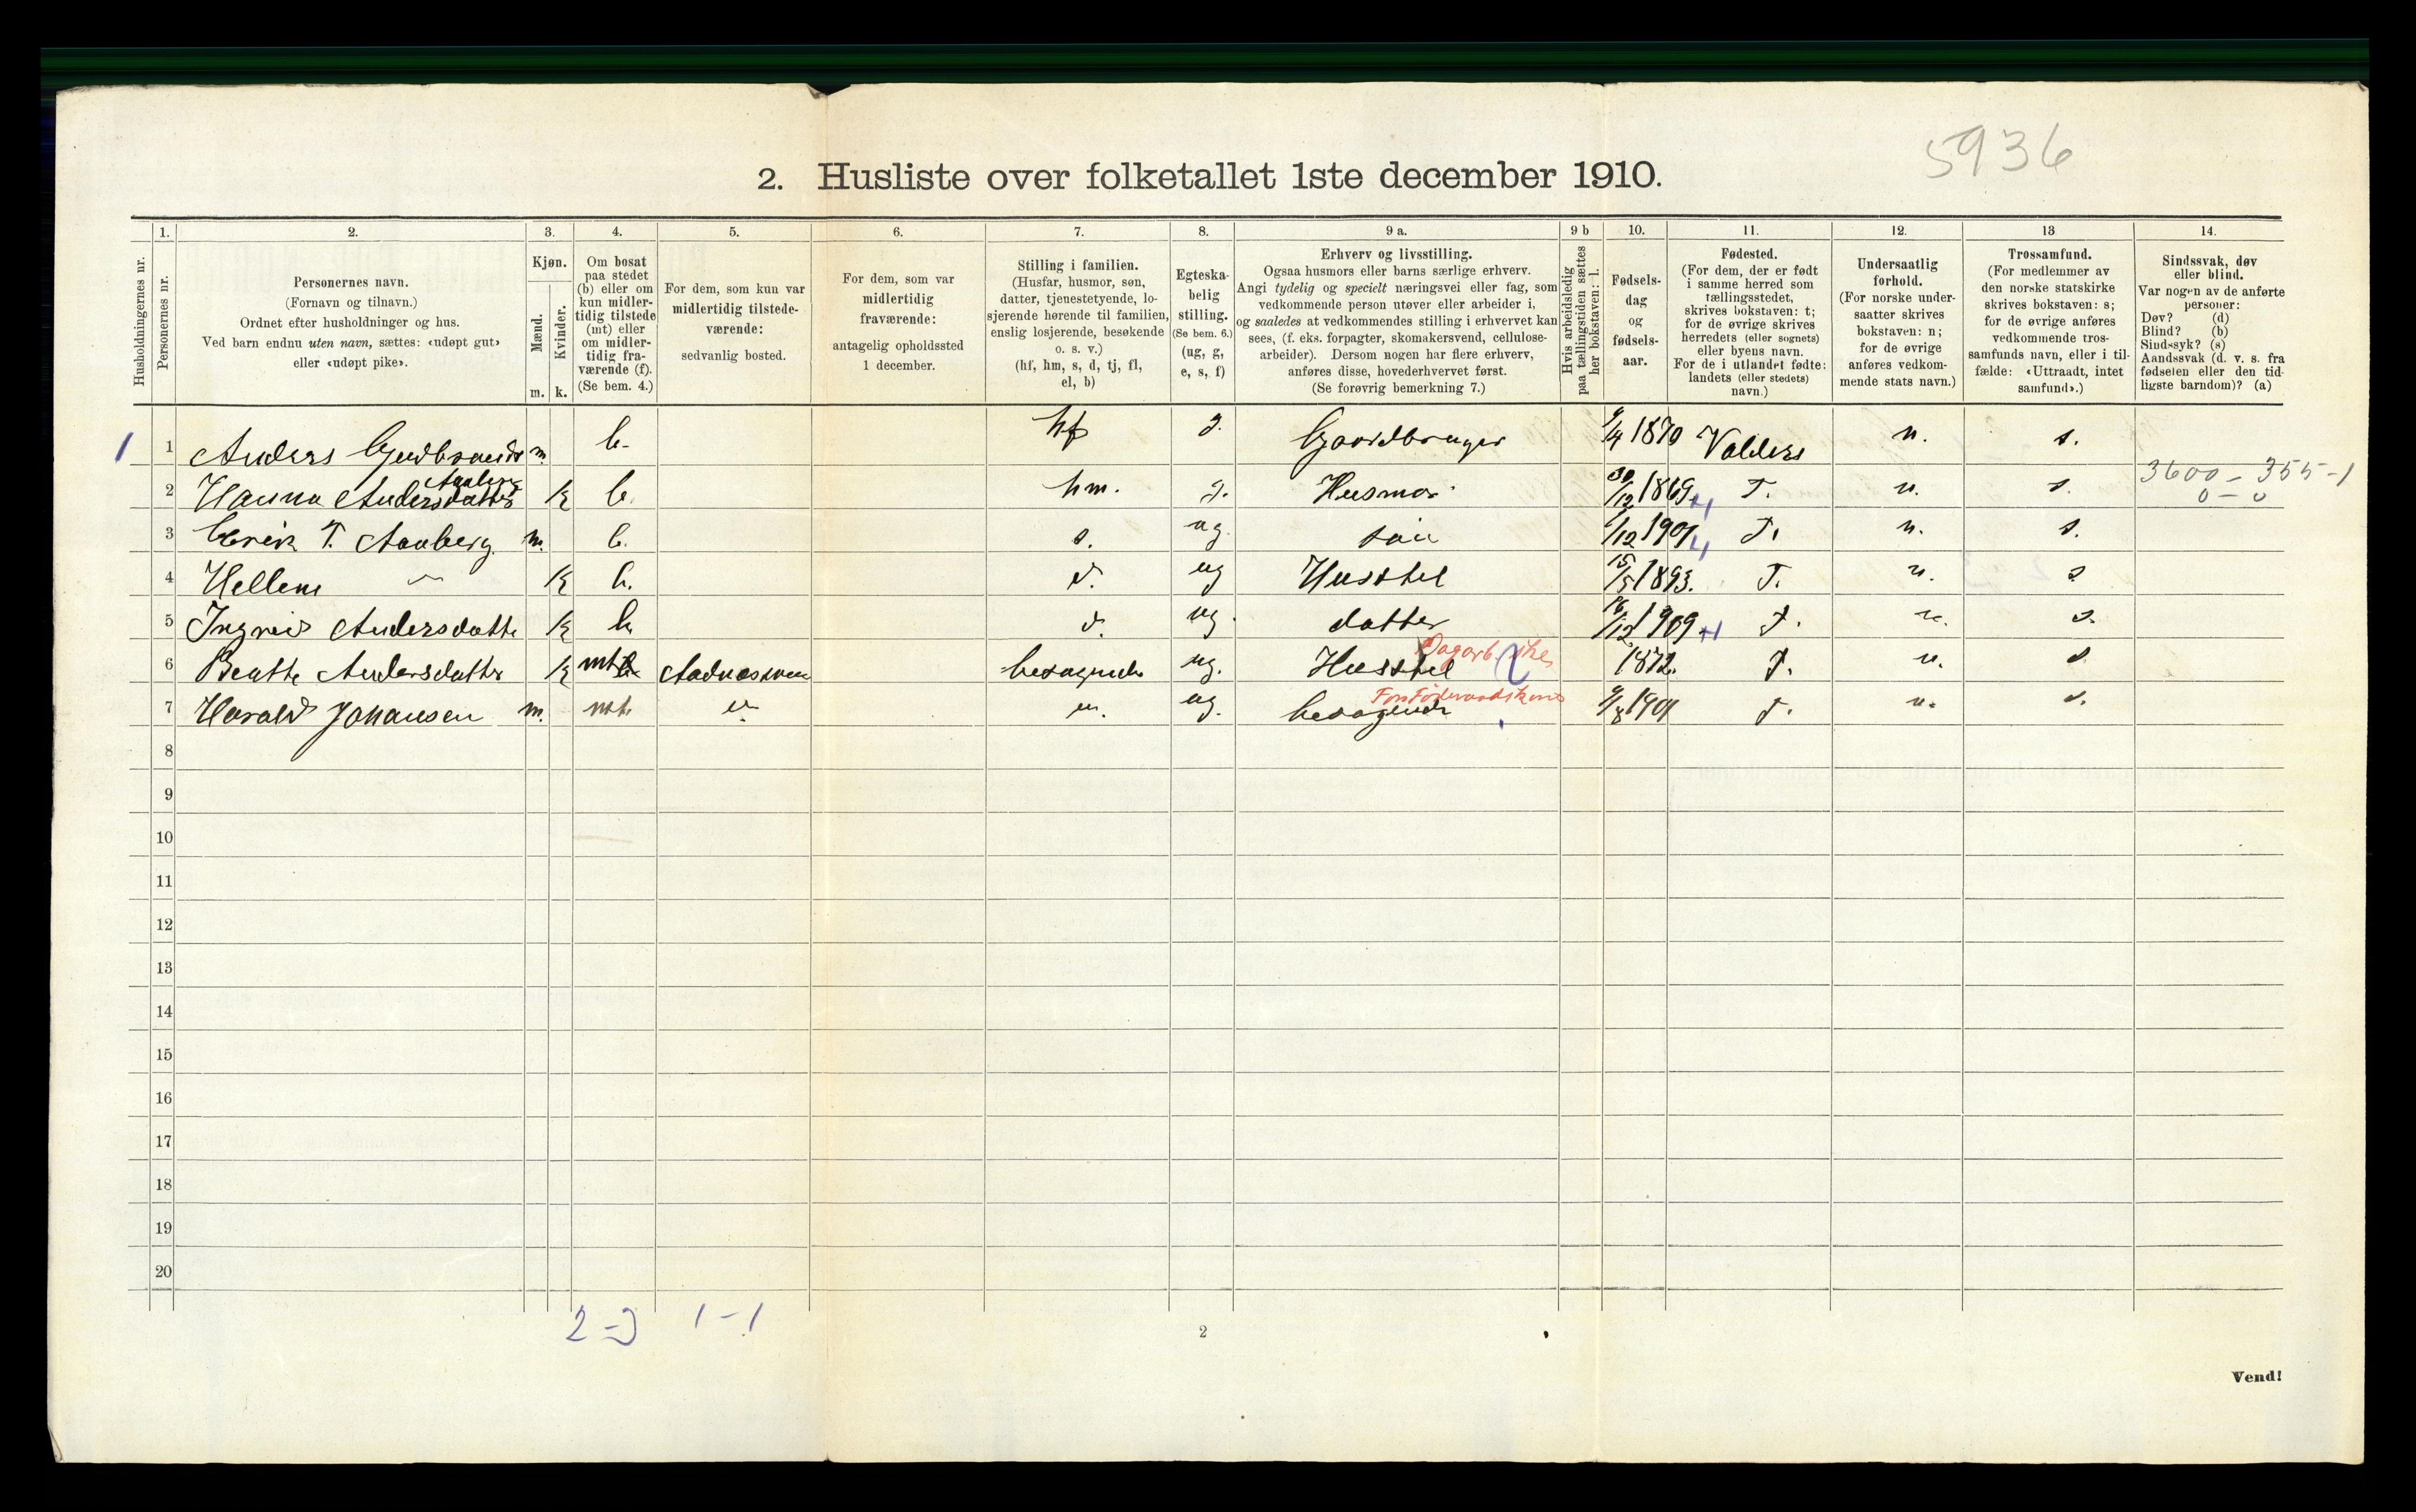 5936
2. Husliste over folketallet 1ste december 1910.
Husholdningernes nr.
1. Personernes nr.
2. Personernes navn.
(Fornavn og tilnavn.)
Ordnet efter husholdninger og hus.
Ved barn endnu uten navn, sættes: «udøpt gut»
eller «udøpt pike».
3. Kjøn.
Mænd. m.
Kvinder. k.
4. Om bosat
paa stedet
(b) eller om
kun midler-
tidig tilstede
(mt) eller
om midler-
tidig fra-
værende (f).
(Se bem. 4.)
5. For dem, som kun var
midlertidig tilstede-
værende:
sedvanlig bosted.
6. For dem, som var
midlertidig
fraværende:
antagelig opholdssted
1 december.
7. Stilling i familien.
(Husfar, husmor, søn,
datter, tjenestetyende, lo-
sjerende hørende til familien,
enslig losjerende, besøkende
o. s. v.)
(hf, hm, s, d, tj, fl,
el, b)
8. Egteska-
belig
stilling.
(Se bem. 6.)
(ug, g,
e, s, f)
9 a. Erhverv og livsstilling.
Ogsaa husmors eller barns særlige erhverv.
Angi tydelig og specielt næringsvei eller fag, som
vedkommende person utøver eller arbeider i,
og saaledes at vedkommendes stilling i erhvervet kan
sees, (f. eks. forpagter, skomakersvend, cellulose-
arbeider). Dersom nogen har flere erhverv,
anføres disse, hovederhvervet først.
(Se forøvrig bemerkning 7.)
9 b Hvis arbeidsledig
paa tællingstiden sættes
her bokstaven: l.
10. Fødsels-
dag
og
fødsels-
aar.
11. Fødested.
(For dem, der er født
i samme herred som
tællingsstedet,
skrives bokstaven: t;
for de øvrige skrives
herredets (eller sognets)
eller byens navn.
For de i utlandet fødte:
landets (eller stedets)
navn.)
12. Undersaatlig
forhold.
(For norske under-
saatter skrives
bokstaven: n;
for de øvrige
anføres vedkom-
mende stats navn.)
13 Trossamfund.
(For medlemmer av
den norske statskirke
skrives bokstaven: s;
for de øvrige anføres
vedkommende tros-
samfunds navn, eller i til-
fælde: «Uttraadt, intet
samfund».)
14. Sindssvak, døv
eller blind.
Var nogen av de anførte
personer:
Døv? (d)
Blind? (b)
Sindssyk? (s)
Aandssvak (d. v. s. fra
fødselen eller den tid-
ligste barndom)? (a)
1 1 Anders Gudbrands m. b. hf g. Gaardbruger 1870 Valders n. s.
2 Hanna Andersdatter k b. hm. g. Husmor 30/12 1869 +1 T. n. s. 3600 - 355 - 1
0 - 0
3 T. Aaberg m. b. s. ug søn /12 1901 T. n. s.
4 Hellene — k b. d. ug Husstel 15/5 1893. T. n. s
5 Ingrid Andersdatte k b d. ug. datter 16/12 1909 +1 T. n. s.
6 Beathe Andersdatter k mt besøgende ug. Husstel 1872. T. n. s
7 Harald Johansen m. mt. ug. besøgende /8 1901 T. n. s.
8
9
10
11
12
13
14
15
16
17
18
19
20
2 - 3 1 - 1
2
Vend!